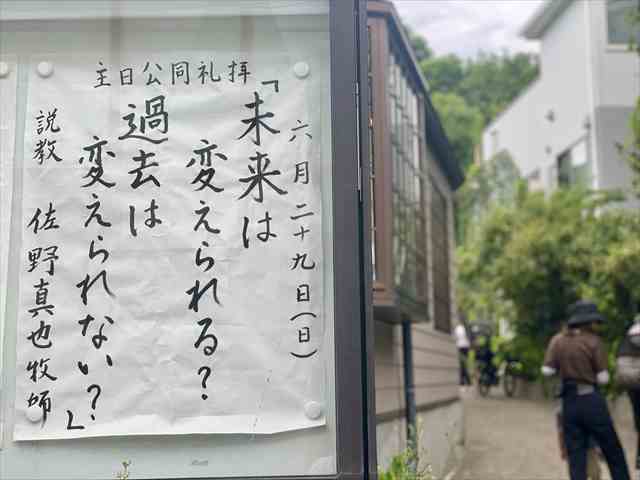 主日公同礼拝
六月二十九日(日)
「未来は
変えられる?
過去は
変えられない?」
説教 佐野真也牧師